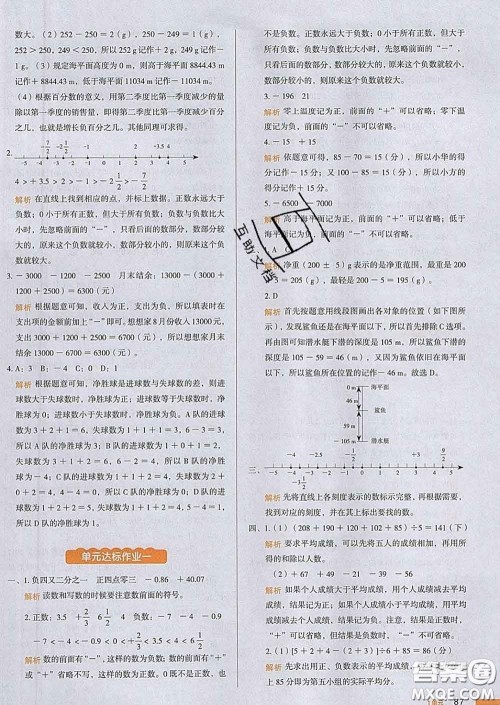 数大。（2）252－250＝2（g） 250－248＝2（g）
252＞250，250＞248，所以252 g记作＋2 g，248 g记作－2 g。
（3）规定海平面高度为0，则高于海平面8844.43 m
记作＋8844.43 m，低于海平面11034 m记作－11034 m。
（4）根据百分数的意义，用第二季度比第一季度减少的量
除以第一季度的销售量，即可求出第二季度比第一季度减少
百分之几，也就是增长负百分之几。其他问题同理可求。
2.
－5 －4 －3 －2 －1 0 1 2 3 4 5
解析 在直线上找到相应的点，并标上数据。正数永远大于
负数；0小于所有正数，但大于所有负数；负数与负数比大
小时，先忽略前面的“－”，数部分较大的，则原来这个负
数就较小，数部分较小的，则原来这个负数就较大。
3.－3000 －1200 月末结余：13000－3000－1200－
2500＝6300（元）
解析 根据题意可知，收入为正，支出为负，所以填表时在
支出项的金额前加上“－”即可。想想家8月份收入13000元，
支出了3000元、1200元、2500元，所以月末结余为13000－
3000－1200－2500＝6300（元）
4.A：3 B：－4 C：0 D：1
解析 根据题意可知，净胜球是进球数与失球数的差，则进
球数大于失球数时，净胜球为正，进球数等于失球数时，
净胜球为0；进球数小于失球数时，净胜球为负。A队的进
球数为3＋2＋1＝6，失球数为1＋1＋1＝3，6＞3，6－3
＝3，所以A队的净胜球为3；B队的进球数为1＋1＋1＝3，
失球数为3＋2＋2＝7，3＜7，7－3＝4，所以B队的净胜
球为－4；C队的进球数为1＋2＋0＝3，失球数为2＋1＋
0＝3，3＝3，所以C队的净胜球为0；D队的进球数为1＋
2＋0＝3，失球数为1＋1＋0＝2，3＞2，3－2＝1，所
以D队的净胜球为1。
单元达标作业一
一、1.负四又二分之一 正四点零三 －0.86 ＋40.07
解析 读数和写数的时候要注意数前面的符号。
解析 数的前面有“－”，这样的数为负数；数的前面有“＋”
或省略不写，这样的数为正数；但0既不是正数，也
不是负数。正数永远大于负数；0小于所有正数，但大于所
有负数；负数与负数比大小时，先忽略前面的“－”，数部
分较大的，则原来这个负数就较小，数部分较小的，则原来
这个负数就较大。
3.－196 21
解析 零上温度记为正，前面的“＋”可以省略；零下温
度记为负，前面的“－”不可以省略。
4.－15 ＋15
解析 依题意可得，85－70＝15（分），所以小华的得分
记作－15分；100－85＝15（分），所以小方的得分记
作＋15分。
5.－6500 －7000
解析 高于海平面记为正，前面的“＋”可以省略；低于
海平面记为负，前面的“－”不可以省略。
解析 净重（200 ± 5）g表示的是净重范围，最重是200
2.D
解析 首先按题意用线段图画出各对象的位置（如下图所
示），发现鲨鱼还是在海平面以下，所以首先排除C选项。
再由图可知潜水艇下潜的深度减去59 m就是鲨鱼的深度，
即105－59＝46（m），所以鲨鱼所在的位置应记作
－46 m。故选D。
0 m 海平面
鲨鱼
－105 m 潜水艇
三、
－5 －4 －3 －2 －1 0 1 2 3 4 5
解析 先将直线上各刻度表示的数标示完整，再根据要求
找到对应的刻度，并在直线上表示出来。
四、1.（1）（208＋190＋120＋102＋85）÷5＝141（下）
解析 要求平均成绩，可以先将五人的成绩相加，再除以
5，即可求出平均成绩。
（2）＋67 ＋49 －21 －39 －56
解析 如果个人成绩大于平均成绩，用个人成绩减去平均
成绩，结果记为正；如果个人成绩小于平均成绩，用平均
成绩减去个人成绩，结果记为负；如果个人成绩等于平均
成绩，结果为0。正数前面的“＋”可以省略，负数前面的
“－”不可以省略。
解析 先求出用正、负数表示的平均成绩，
上85分即为第五小组的实际平均分。
互助文档
答案圈
MXQE.COM
87